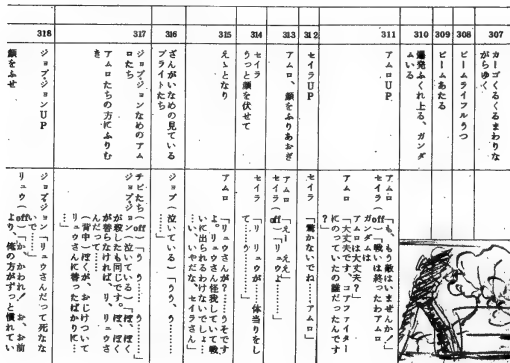 307
カーゴくるくるまわりな
がらゆく
308
ビームライフルうつ
309
ビームあたる
310
爆発ふくれ上る、ガンダ
ムいる
311
アムロUP
アムロ「も、もう敵はいませんか!」
セイラ(off)「戦いは終ったわアムロ
ガンダムは
アムロは大丈夫?」
アムロ「大丈夫です、コアファイター
にのっていたの誰だったんです
?」
312
セイラUP
セイラ「驚かないでね……アムロ」
313
アムロ、顔をふりあおぎ
アムロ「えー ええ」
セイラ(off)「リュウよ……」
314
セイラ
うっと顔を伏せて
セイラ「リ リュウが……体当りをし
315
えっとなり
アムロ「リュウさんが?……うそです
よ。リュウさん怪我していて戦
いに出られるわけないでしょ…
…い、いやだな、セイラさん」
316
ざんがいなめの見ている
ブライトたち
ジョブ(泣いている)「うう、う…
……」
317
ジョブジョンなめのアム
ロたち
アムロたちの方にふりむ
き
チビたち(off)「う う……う……」
ジョブジョン(泣いている)「ぼ、ぼく
が殺したも同じです。ぼ、ぼく
が替らなければ、リ、リュウさ
んだって……」
(背中)ぼくが、おじけついて
リュウさんに替ったばかりに…
……」
318
ジョブジョンUP
顔をふせ
ジョブジョン「リュウさんだって死なな
いで……」
リュウ(off)「か、かわれ! お、お前
より、俺の方がずっと慣れてい